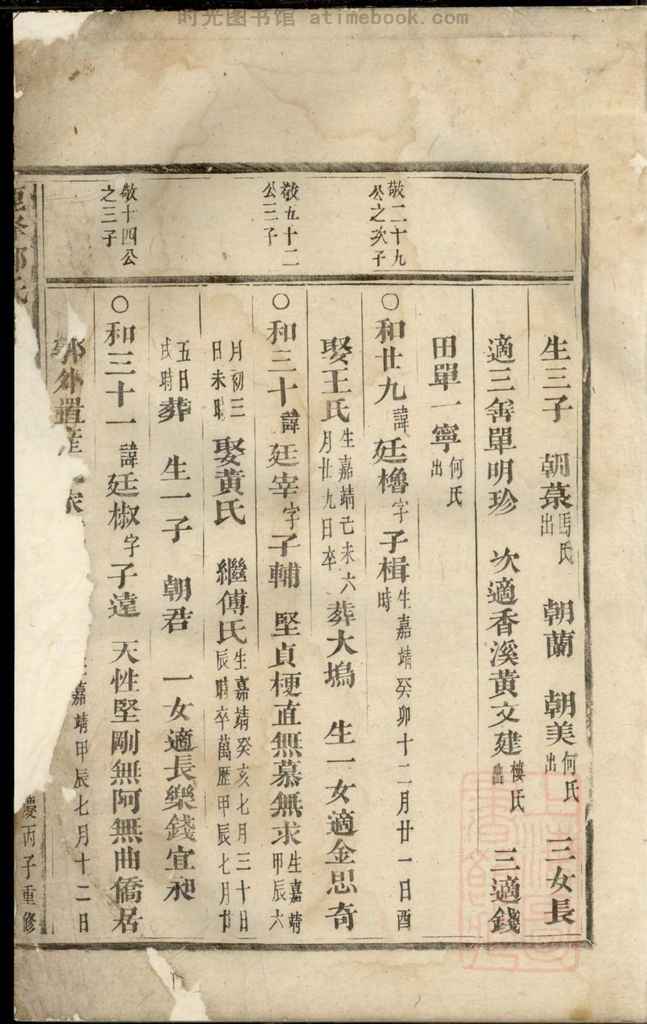 时光图书馆 atimebook.com
敬二十九
公之次子
敬五十二
公三子
敬十四公
之三子
生三子 朝菉馮氏出 朝蘭 朝美何氏出 三女長
適三畬單明珍 次適香溪黃文建樓氏出 三適錢
田單一寧何氏出
○和廿九諱廷櫓字子楫生嘉靖癸卯十二月廿一日酉時
娶王氏生嘉靖己未六月廿九日卒 葬大塢 生一女適金思奇
○和三十諱廷宰字子輔 堅貞梗直無慕無求生嘉靖甲辰六
月初三日未時 娶黃氏 繼傅氏生嘉靖癸亥七月三十日辰時卒萬歷甲辰七月廿
五日戌時葬 生一子 朝君 一女適長樂錢宜昶
○和三十一諱廷椒字子遠 天性堅剛無阿無曲僑居
外置產 嘉靖甲辰七月十二日
慶丙子重修